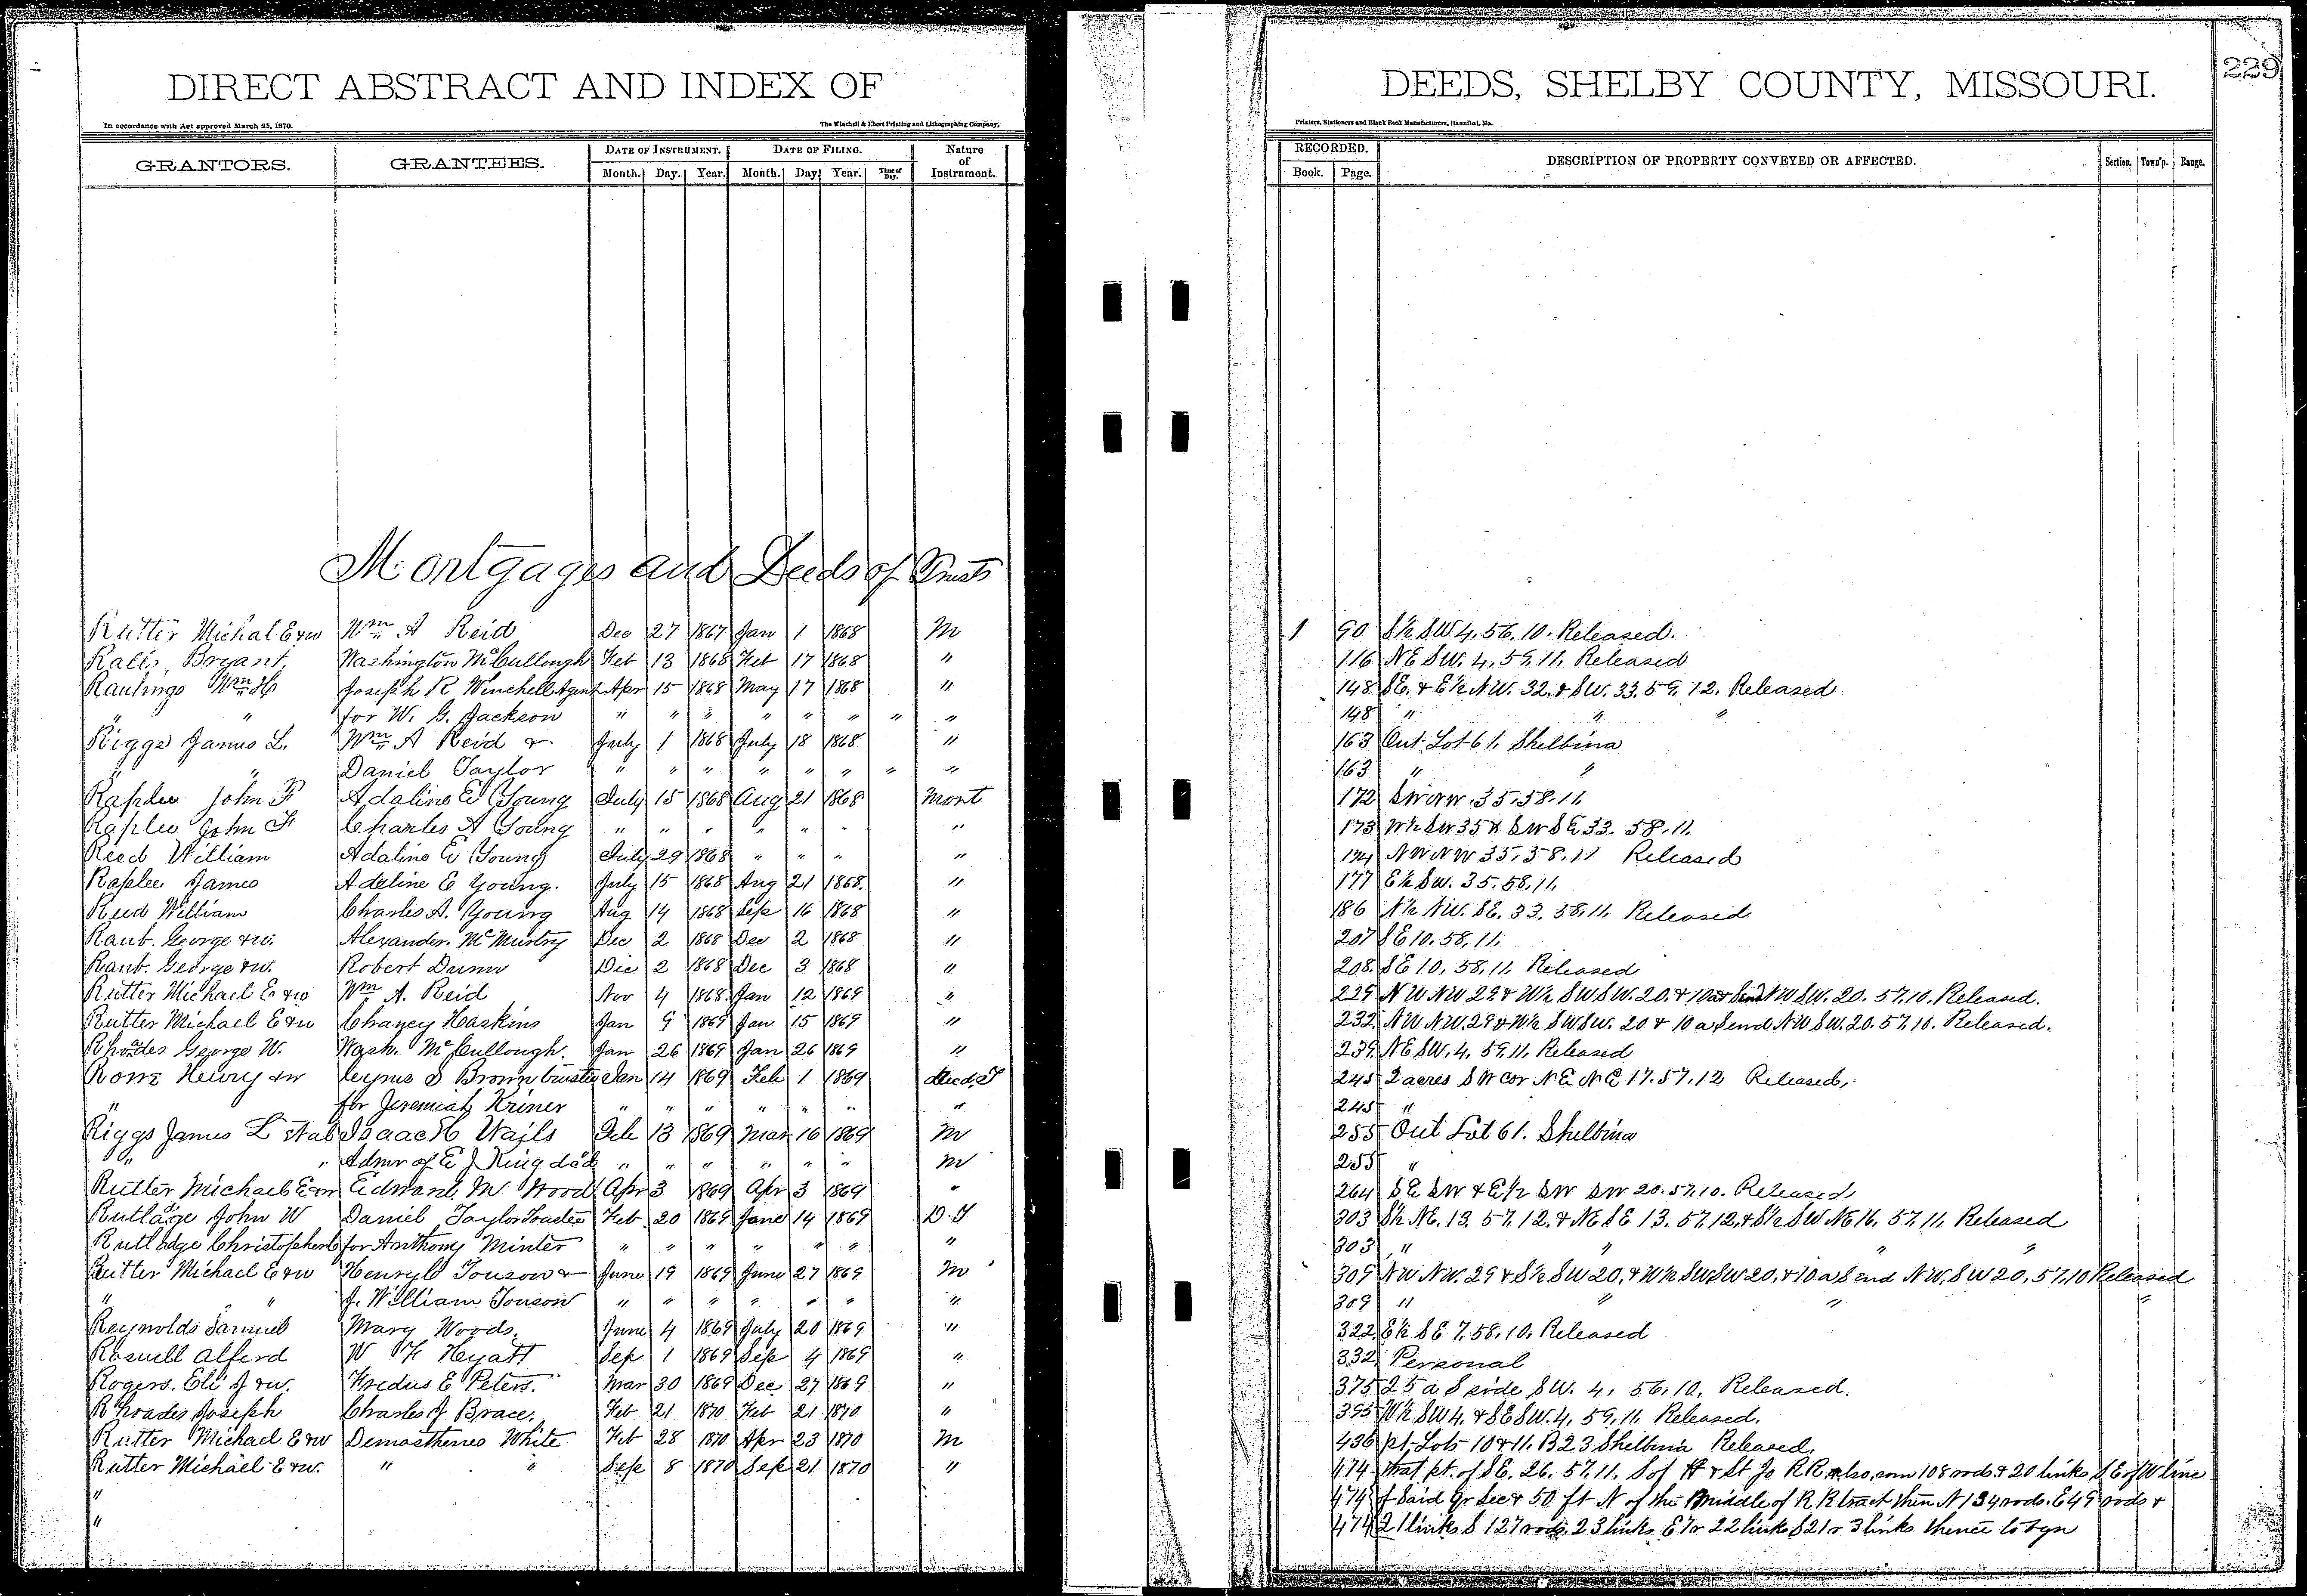 DIRECT ABSTRACT AND INDEX OF
In accordance with Act approved March 25, 1870.
The Winchell & Ebert Printing and Lithographing Company,
GRANTORS. GRANTEES. DATE OF INSTRUMENT. DATE OF FILING. Nature of Instrument.
Month. Day. Year. Month. Day Year. Time of Day.
Mortgages and Deeds of Trusts
Rutter Michal E & w Wm A Reid Dec 27 1867 Jan 1 1868 M
Ralls Bryant Washington McCullough Feb 13 1868 Feb 17 1868 "
Raulings Wm H Joseph R Winchell Agent Apr 15 1868 May 17 1868 "
" " for W. G. Jackson " " " " " " " "
Riggs James L. Wm A Reid & July 1 1868 July 18 1868 "
" " Daniel Taylor " " " " " " " "
Raplee John F Adaline E Young July 15 1868 Aug 21 1868 Mort
Raplee John F Charles A Young " " " " " " "
Reed William Adaline E Young July 29 1868 " " " "
Raplee James Adeline E Young. July 15 1868 Aug 21 1868. "
Reed William Charles A. Young Aug 14 1868 Sep 16 1868 "
Raub. George & w. Alexander McMurtry Dec 2 1868 Dec 2 1868 "
Raub. George & w. Robert Dunn Dec 2 1868 Dec 3 1868 "
Rutter Michael E & w Wm A. Reid Nov 4 1868. Jan 12 1869 "
Rutter Michael E & w Chaney Haskins Jan 9 1869 Jan 15 1869 "
Rhoades George W. Wash. McCullough. Jan 26 1869 Jan 26 1869 "
Rowe Henry & w Cyrus S Brown trustee Jan 14 1869 Feb 1 1869 Deed T
" for Jeremiah Kriner " " " " " " "
Riggs James L et al Isaac H Wails Feb 13 1869 Mar 16 1869 M
" " Admr of E J King dec'd " " " " " " M
Rutter Michael E & w Edward M Wood Apr 3 1869 Apr 3 1869 "
Rutladge John W Daniel Taylor Trustee Feb 20 1869 June 14 1869 D. T
Rutladge Christopher C for Anthony Minter " " " " " " "
Rutter Michael E & w Henry C Touson & June 19 1869 June 27 1869 M
" " J. William Touson " " " " " " "
Reynolds Samuel Mary Woods. June 4 1869 July 20 1869 "
Roswell Alferd W H Hyatt Sep 1 1869 Sep 4 1869 "
Rogers. Eli J & w. Fredus E Peters. Mar 30 1869 Dec 27 1869 "
Rhoades Joseph Charles J. Brace. Feb 21 1870 Feb 21 1870 "
Rutter Michael E & w Demosthenes White Feb 28 1870 Apr 23 1870 M
Rutter Michael E & w. " " Sep 8 1870 Sep 21 1870 "
"
"
DEEDS, SHELBY COUNTY, MISSOURI.
229
Printers, Stationers and Blank Book Manufacturers, Hannibal, Mo.
RECORDED. DESCRIPTION OF PROPERTY CONVEYED OR AFFECTED. Section. Town'p. Range.
Book. Page.
1 90 S½ SW 4. 56. 10. Released.
116 NE SW. 4. 59. 11. Released
148 SE. & E½ NW. 32. & SW. 33. 59. 12. Released
148 " " "
163 Out Lot 61. Shelbina
163 " "
172 SW NW. 35. 58. 11
173 W½ SW 35 & SW SE 33. 58. 11.
174 NW NW 35. 58. 11 Released
177 E½ SW. 35. 58. 11.
186 N½ NW. SE. 33. 58. 11. Released
207 SE 10. 58. 11.
208. SE 10. 58. 11. Released
229 NW NW 29. & W½ SW SW. 20. & 10 a S end NW SW. 20. 57. 10. Released.
232 NW NW. 29 & W½ SW SW. 20 & 10 a S end NW SW. 20. 57. 10. Released.
239. NE SW. 4. 59. 11. Released
245 2 acres SW cor NE NE 17. 57. 12 Released.
245 "
255 Out Lot 61. Shelbina
255 "
264 SE SW & E½ SW SW 20. 57. 10. Released
303 S½ NE. 13. 57. 12. & NE SE 13. 57. 12. & S½ SW NE 16. 57. 11. Released
303 " " " "
309 NW NW. 29 & S½ SW 20. & W½ SW SW 20. & 10 a S end NW. SW 20. 57. 10 Released
309 " " " "
322 E½ SE 7. 58. 10. Released
332 Personal
375 25 a S side SW. 4. 56. 10. Released.
395 W½ SW 4. & SE SW. 4. 59. 11. Released.
436 pt. Lots 10 & 11. B 23 Shelbina Released.
474 that pt. of SE. 26. 57. 11. S of H & St Jo RR also, com 108 rods & 20 links S E of W line
474 of Said Qr Sec & 50 ft N of the middle of R R tract then N 134 rods. E 49 rods &
474 21 links S 127 rods. 23 links E 7 r 22 links S 21 r 3 links thence to bgn